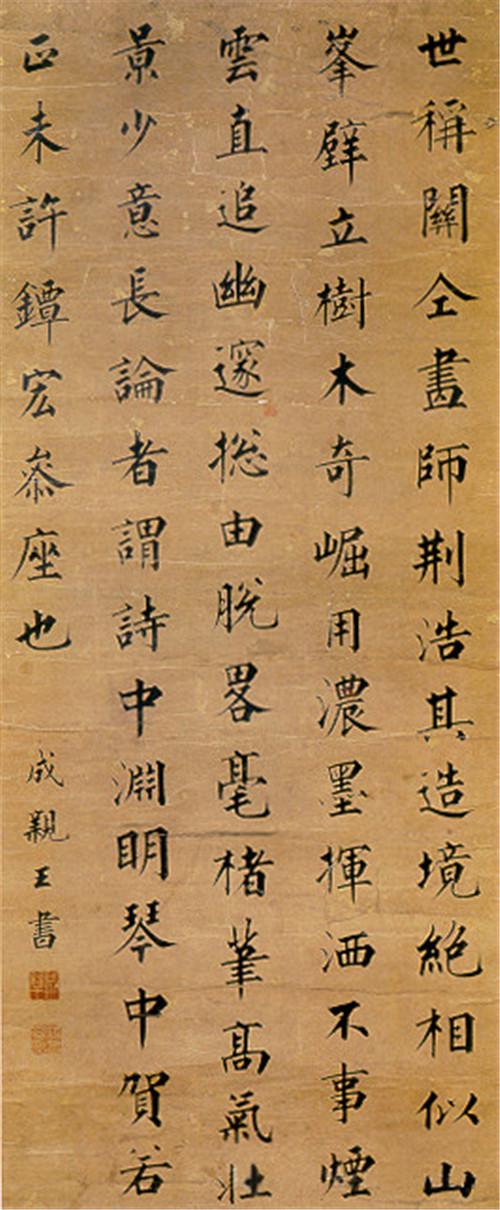 世稱關仝畫師荆浩其造境絶相似山
峯壁立樹木奇崛用濃墨揮洒不事煙
雲直追幽邃揔由脫畧毫楮筆高氣壯
景少意長論者謂詩中淵明琴中賀若
正未許鐔宏叅座也
成親王書